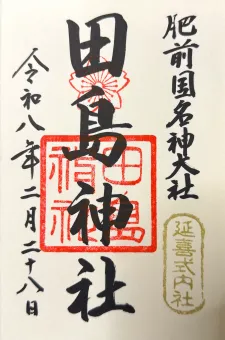 肥前国名神大社
延喜式内社
田島神社
令和八年二月二十八日